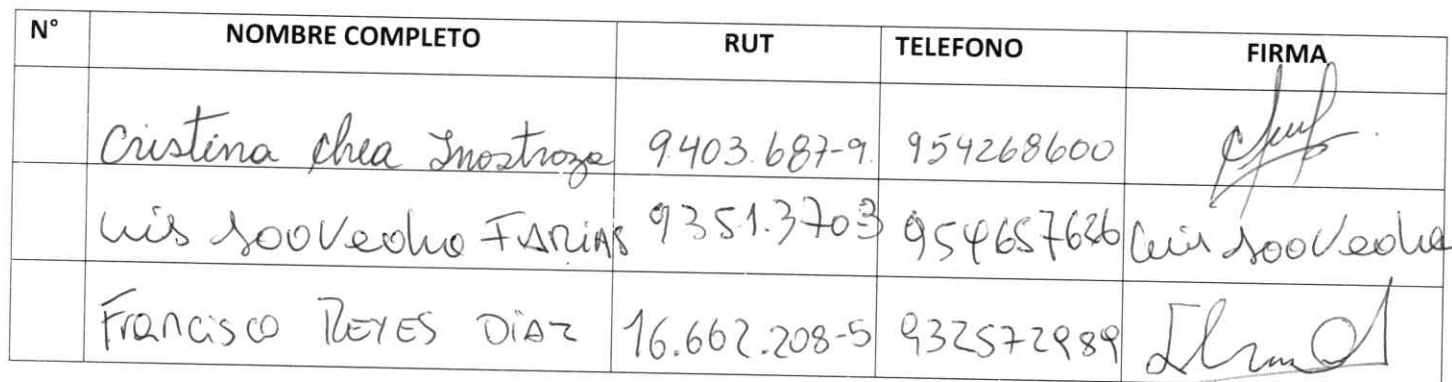 N° NOMBRE COMPLETO RUT TELEFONO FIRMA
Cristina Chea Inostroza 9.403.687-9. 954268600
Luis Saavedra FARIAS 9351.3703 954657626 Luis Saavedra
Francisco REYES DIAZ 16.662.208-5 932572989